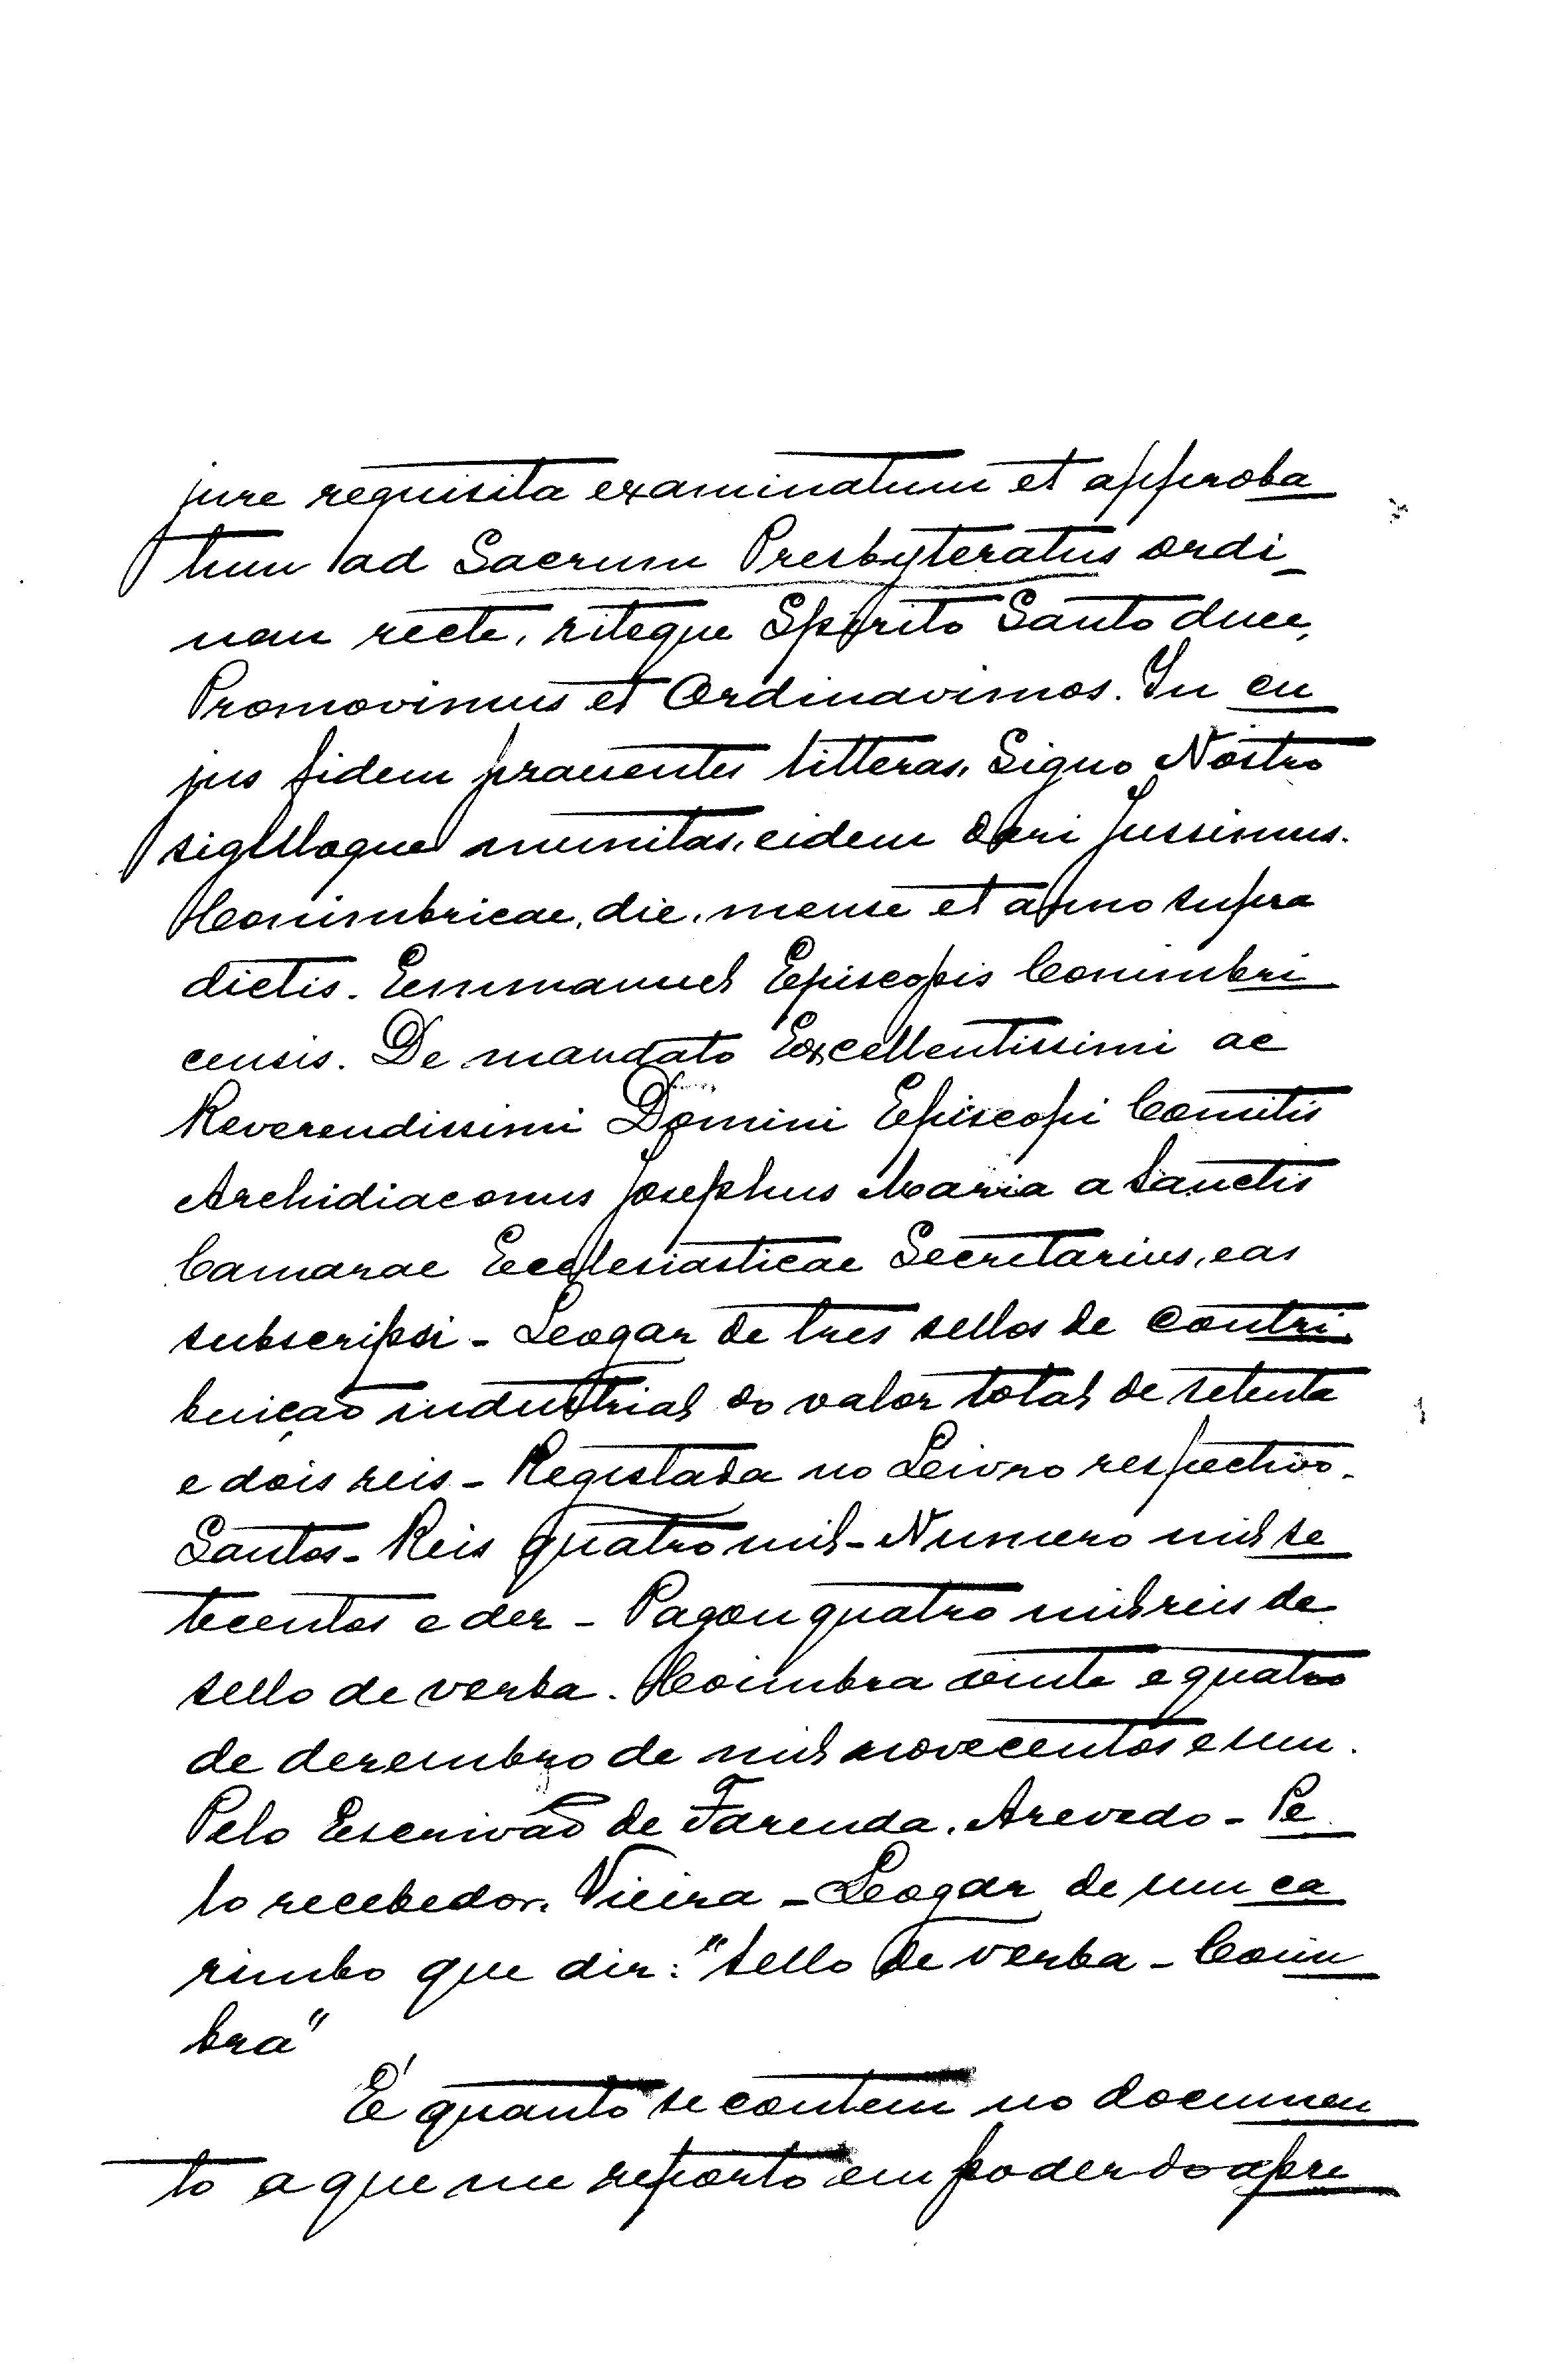 jure requisita examinatum et approba
tum ad Sacrum Presbyteratus ordi_
nam recte, riteque Spirito Santo duce,
Promovimus et Ordinavimos. In cu
jus fidem praesentes litteras, Signo Nostro
sigilloque munitas, eidem dari Jussimus.
Conimbricae, die, mense et anno supra
dictis. Emmanuel Episcopis Conimbri
censis. De mandato Excellentissimi ac
Reverendissimi Domini Episcopi Comitis
Archidiaconus Josephus Maria a Sanctis
Camarae Ecclesiasticae Secretarius, eas
subscripsi - Logar de tres sellos de contri
buição industrial do valor total de setenta
e dois reis - Registada no Livro respectivo.
Santos - Reis quatro mil - Numero mil se
tecentos e dez - Pagou quatro mil reis de
sello de verba. Coimbra vinte e quatro
de dezembro de mil novecentos e um.
Pelo Escrivão de Fazenda, Azevedo - Pe
lo recebedor, Vieira - Logar de um ca
rimbo que diz: "Sello de verba - Coim
bra"
É quanto se contem no documen
to a que me reporto em poder do apre